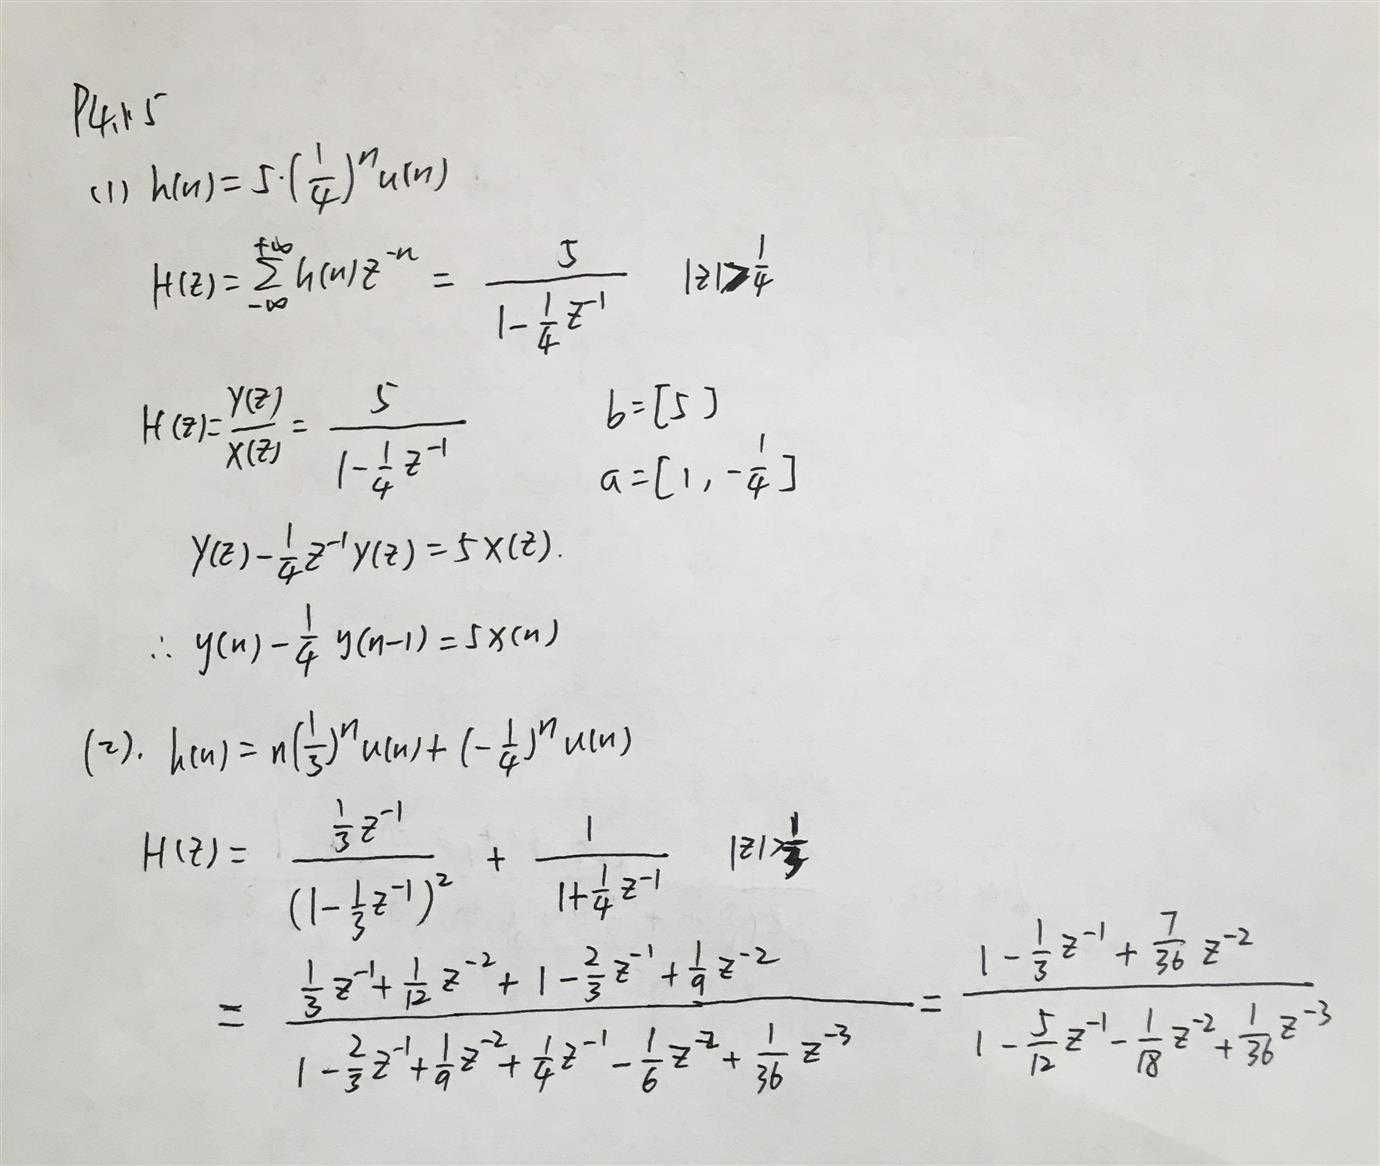 P4.15
(1) h(n)=5·(1/4)^n u(n)
H(z)=∑_{-∞}^{+∞} h(n)z^{-n} = 5/(1-1/4 z^{-1}) |z|>1/4
H(z)=Y(z)/X(z)=5/(1-1/4 z^{-1}) b=[5]
a=[1, -1/4]
Y(z)-1/4 z^{-1}Y(z)=5X(z).
∴ y(n)-1/4 y(n-1)=5x(n)
(2). h(n)=n(1/3)^n u(n)+(-1/4)^n u(n)
H(z)= (1/3 z^{-1})/(1-1/3 z^{-1})^2 + 1/(1+1/4 z^{-1}) |z|>1/3
= (1/3 z^{-1}+1/12 z^{-2}+1-2/3 z^{-1}+1/9 z^{-2})/(1-2/3 z^{-1}+1/9 z^{-2}+1/4 z^{-1}-1/6 z^{-2}+1/36 z^{-3}) = (1-1/3 z^{-1}+7/36 z^{-2})/(1-5/12 z^{-1}-1/18 z^{-2}+1/36 z^{-3})